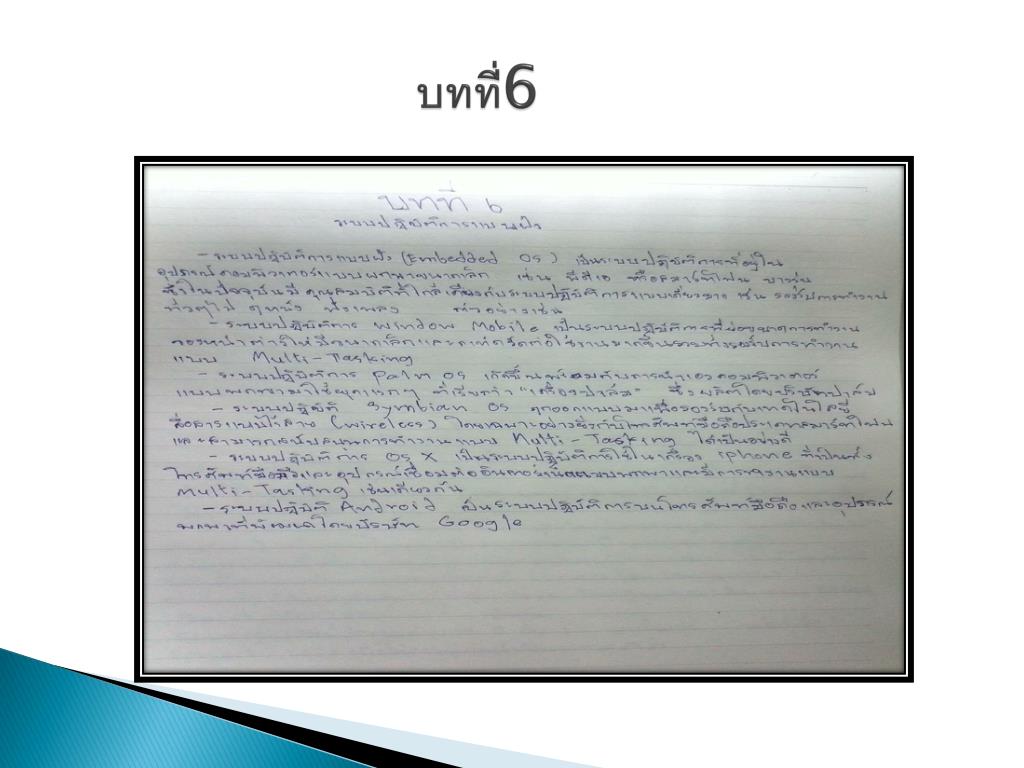 บทที่6
บทที่ 6
ระบบปฏิบัติการแบบฝัง
- ระบบปฏิบัติการแบบฝัง (Embedded OS) เป็นระบบปฏิบัติการที่อยู่ใน
อุปกรณ์คอมพิวเตอร์แบบพกพาขนาดเล็ก เช่น พีดีเอ หรือสมาร์ทโฟน บางรุ่น
ซึ่งในปัจจุบันมีคุณสมบัติที่ใกล้เคียงกับระบบปฏิบัติการแบบเดี่ยว เช่น รองรับการทำงาน
ทั่วๆไป ดูหนัง ฟังเพลง ตัวอย่างเช่น
- ระบบปฏิบัติการ Window Mobile เป็นระบบปฏิบัติการที่ย่อขนาดการทำงาน
ของหน้าตาให้มีขนาดเล็กและ
แบบ Multi-Tasking
- ระบบปฏิบัติการ Palm OS เกิดขึ้นพร้อมกับการนำเอาคอมพิวเตอร์
แบบพกพามาใช้ยุคแรกๆ ที่เรียกว่า "เครื่องปาล์ม" ซึ่งผลิตโดยบริษัทปาล์ม
- ระบบปฏิบัติ Symbian OS ถูกออกแบบมาเพื่อรองรับกับเทคโนโลยี
สื่อสารแบบไร้สาย (wireless) โดยเฉพาะอย่างยิ่งกับโทรศัพท์มือถือประเภทสมาร์ทโฟน
และสามารถสนับสนุนการทำงานแบบ Multi-Tasking ได้เป็นอย่างดี
- ระบบปฏิบัติการ OS X เป็นระบบปฏิบัติการใช้ในเครื่อง iphone ที่เป็นทั้ง
โทรศัพท์มือถือและอุปกรณ์เชื่อมต่ออินเตอร์เน็ตแบบพกพาและมีการทำงานแบบ
Multi-Tasking เช่นเดียวกัน
- ระบบปฏิบัติ Android เป็นระบบปฏิบัติการบนโทรศัพท์มือถือและอุปกรณ์
พกพาที่พัฒนาโดยบริษัท Google